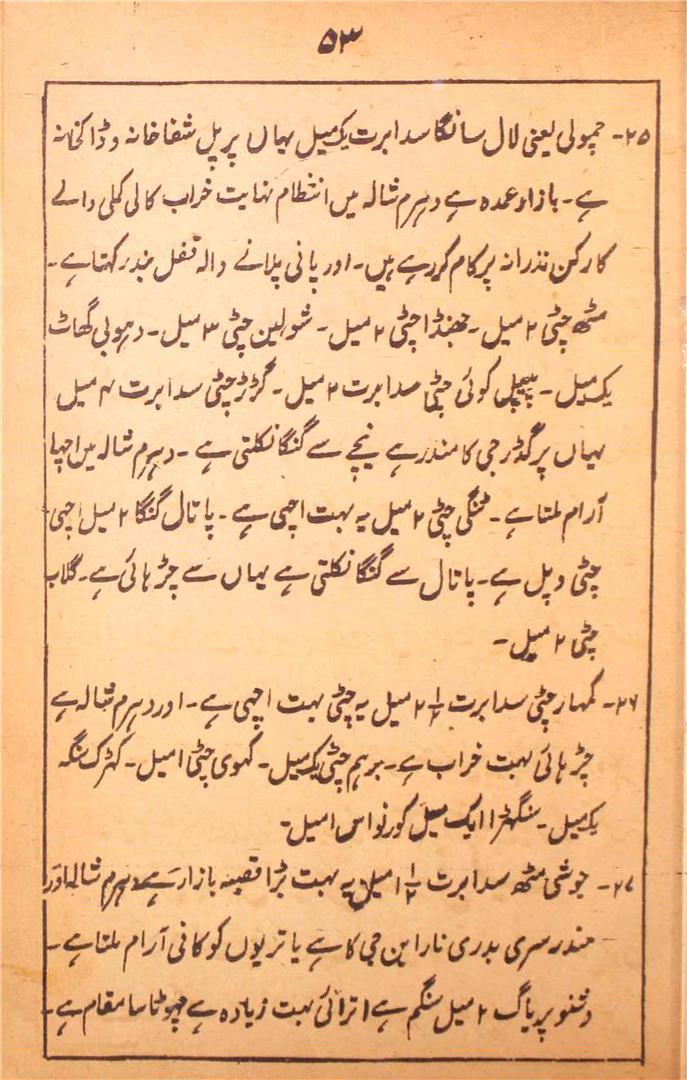 ۵۳
۲۵- چمولی یعنی لال سانگا سدابرت یک میل یہاں پر پل شفاخانہ وڈاکخانہ
ہے۔ بازار عمدہ ہے دہرم شالہ میں انتظام نہایت خراب کالی کملی والے
کارکن نذرانہ پر کام کررہے ہیں۔ اور پانی پلانے والہ قفل بند رکہتا ہے۔
مٹھ چٹی ۲ میل۔ جھنڈا چٹی ۲ میل۔ شولین چٹی ۳ میل۔ دہوبی گھاٹ
یک میل۔ پیپل کوئی چٹی سدابرت ۲ میل۔ گڑڑ چٹی سدابرت ۴ میل
یہاں پر گڈرجی کا مندر ہے نیچے سے گنگا نکلتی ہے۔ دہرم شالہ میں اچہا
آرام ملتا ہے۔ ٹنگی چٹی ۲ میل یہ بہت اچہی ہے۔ پاتال گنگا ۲ میل اچہی
چٹی وپل ہے۔ پاتال سے گنگا نکلتی ہے یہاں سے چڑہائی ہے۔ گلاب
چٹی ۲ میل۔
۲۶- کمہار چٹی سدابرت ۲½ میل یہ چٹی بہت اچہی ہے۔ اور دہرم شالہ ہے
چڑہائی بہت خراب ہے۔ برہم چٹی یک میل۔ کہوی چٹی ۱ میل۔ کہڑک سنگہ
یک میل۔ سنگھڑا ایک میل گورنواس ۱ میل۔
۲۷- جوشی مٹھ سدابرت ۱½ میل یہ بہت بڑا قصبہ بازار ہے دہرم شالہ اور
مندر سری بدری نارائن جی کا ہے یاتریوں کو کافی آرام ملتا ہے۔
وشنو پریاگ ۲ میل سنگم ہے اترائی بہت زیادہ ہے چہوٹا سا مقام ہے۔